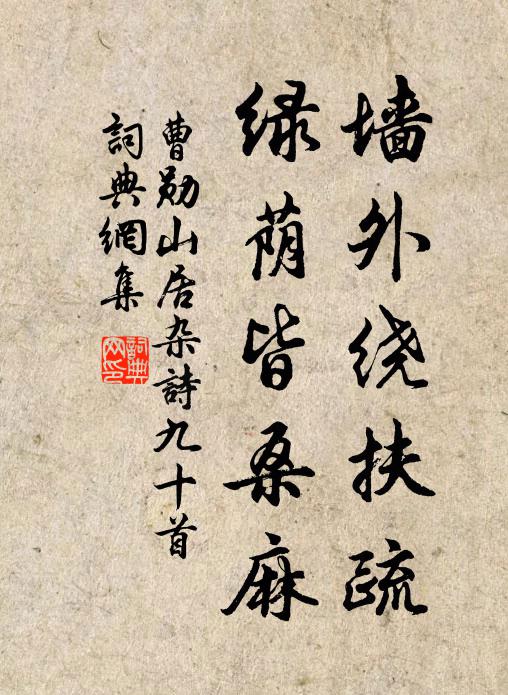 墙外绕扶疏
绿荫皆桑麻
曹勋山居杂詩九十首
詞典網集
詞典网印